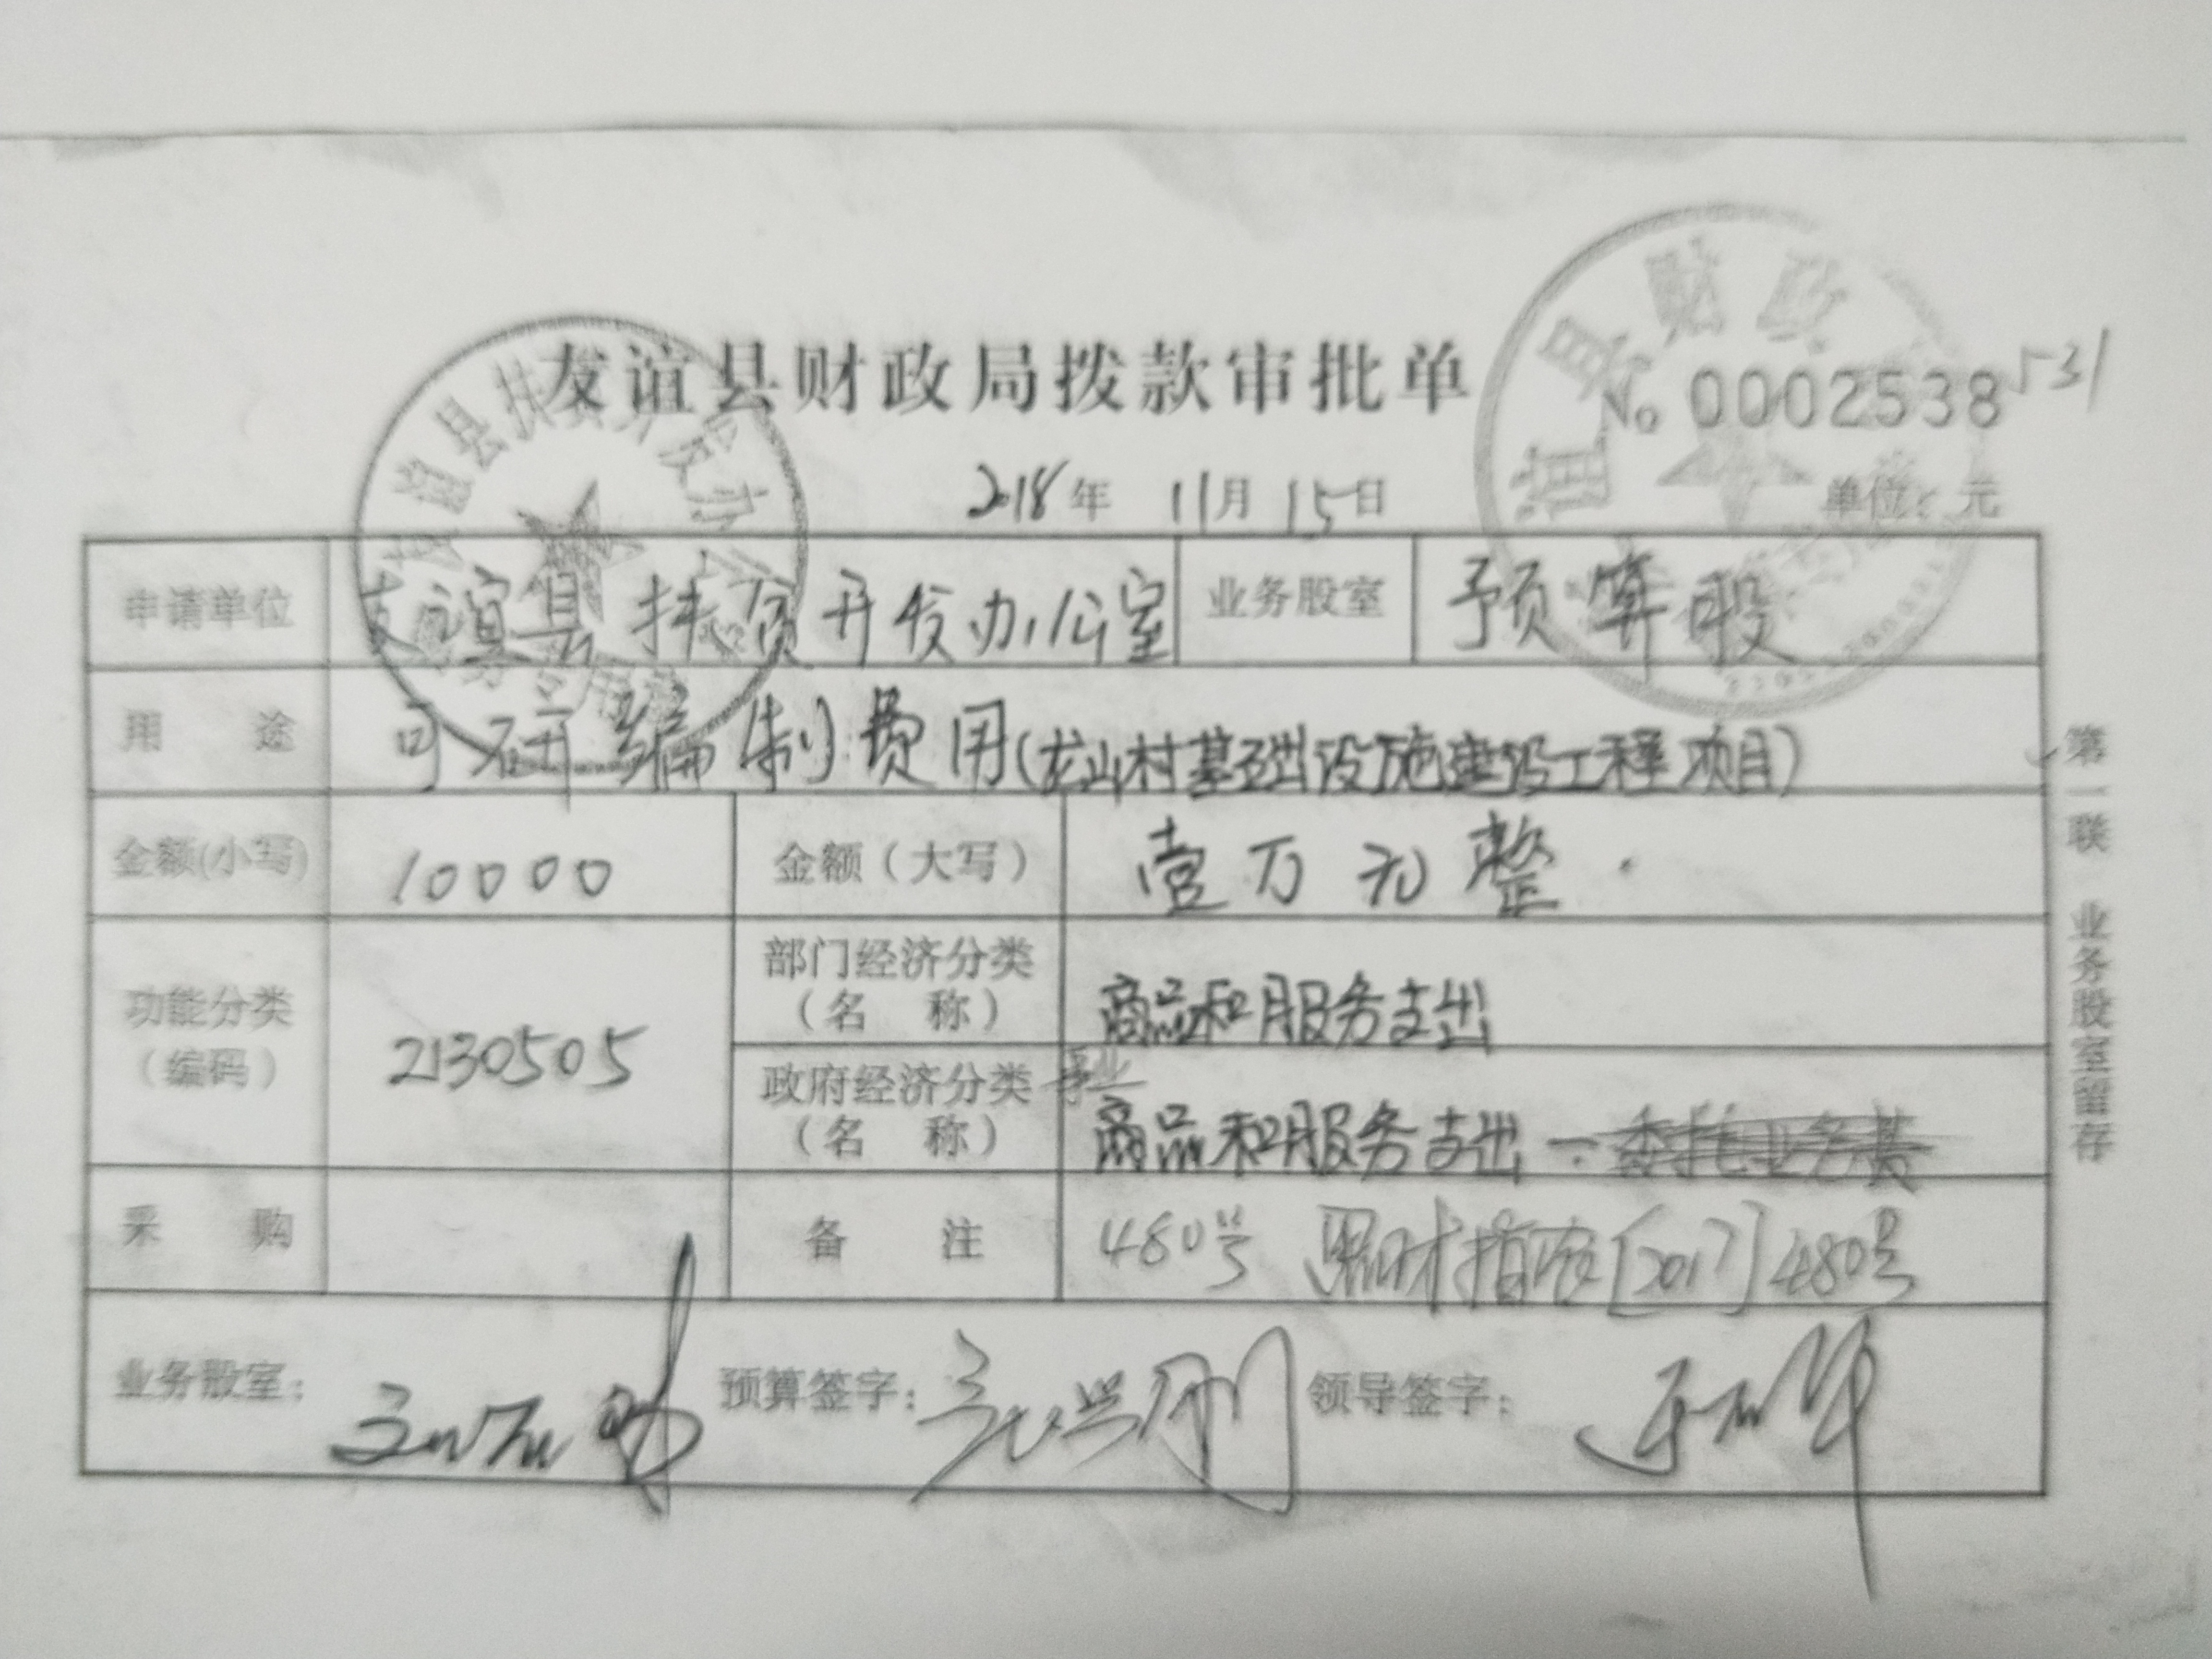 友谊县财政局拨款审批单
№ 0002538 531
2018年 11月 15日 单位：元
申请单位 友谊县扶贫开发办公室 业务股室 预算股
用 途 可研编制费用(龙山村基础设施建设工程项目)
金额(小写) 10000 金额（大写） 壹万元整
功能分类（编码） 2130505 部门经济分类（名 称） 商品和服务支出
政府经济分类（名 称） 商品和服务支出－委托业务费
采 购 备 注 480号 黑财指农[2017]480号
业务股室： 预算签字： 领导签字：
第一联 业务股室留存
友谊县扶贫开发办公
谊县财政